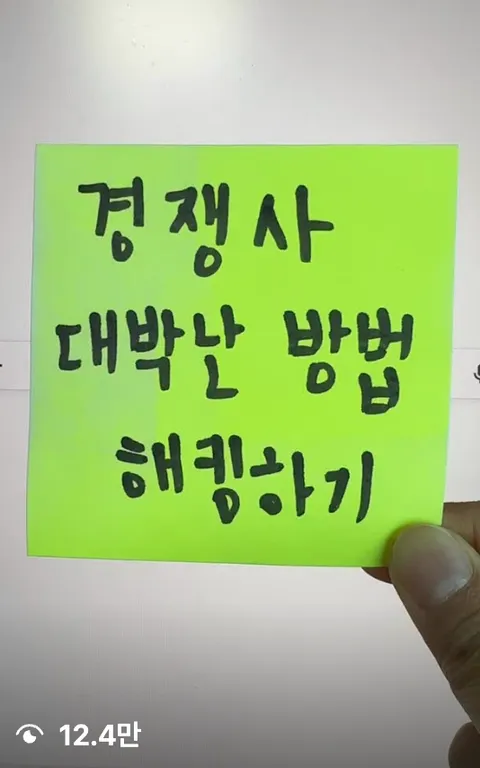 경쟁사
대박난 방법
해킹하기
12.4만